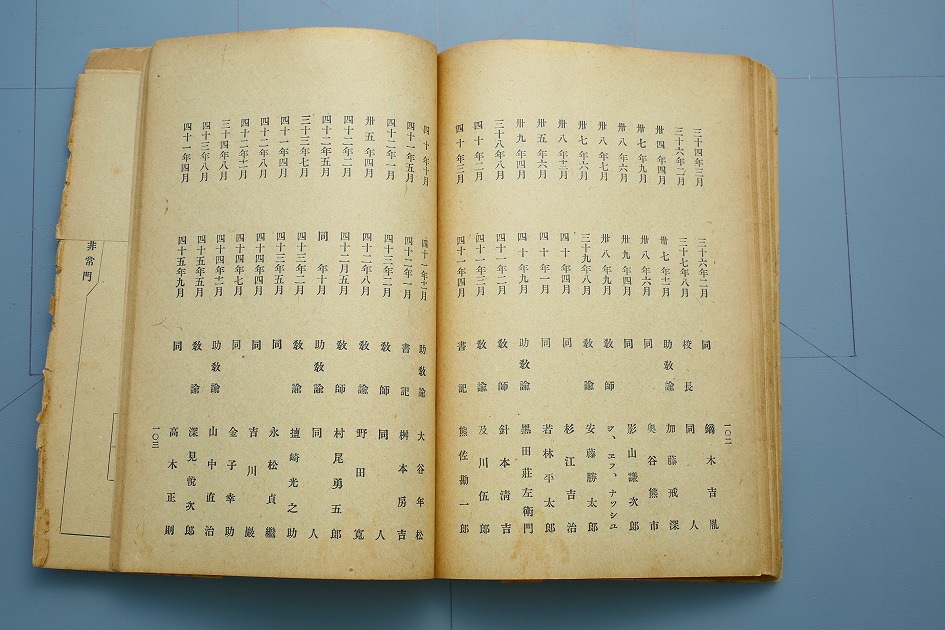 三十四年三月 三十六年二月 同 鏑木吉胤
三十六年二月 三十七年八月 校長 同人
卅四年四月 卅七年十二月 助教諭 加藤戒深
卅七年九月 卅八年六月 同 奥谷熊市
卅八年六月 卅九年四月 同 影山謙次郎
卅八年七月 卅八年九月 教師 ワ、エフ、ナツシユ
卅七年六月 三十九年八月 教諭 安藤勝太郎
卅八年十二月 四十年四月 同 杉江吉治
卅五年六月 四十年十一月 同 若林平太郎
卅九年四月 四十年九月 助教諭 黒田荘左衛門
三十八年八月 四十一年二月 教師 針本清吉
四十年二月 四十一年三月 教諭 及川伍郎
四十年三月 四十一年四月 書記 熊佐勘一郎
一〇二
四十年十月 四十一年十二月 助教諭 大谷年松
四十一年五月 四十二年一月 書記 桝本房吉
四十二年一月 四十三年二月 教師 同人
卅五年四月 四十二年八月 教諭 野田寛
四十二年二月 四十二月五月 教師 村尾勇五郎
四十二年五月 同年十月 助教諭 同人
三十三年七月 四十三年二月 教諭 壇崎光之助
四十一年四月 四十三年五月 同 永松貞繼
四十二年八月 四十四年四月 同 吉川巖
四十二年十二月 四十四年七月 同 金子幸助
三十四年八月 四十四年十二月 助教諭 山中直治
四十三年八月 四十五年五月 教諭 深見悦次郎
四十一年四月 四十五年九月 同 高木正則
一〇三
非常門